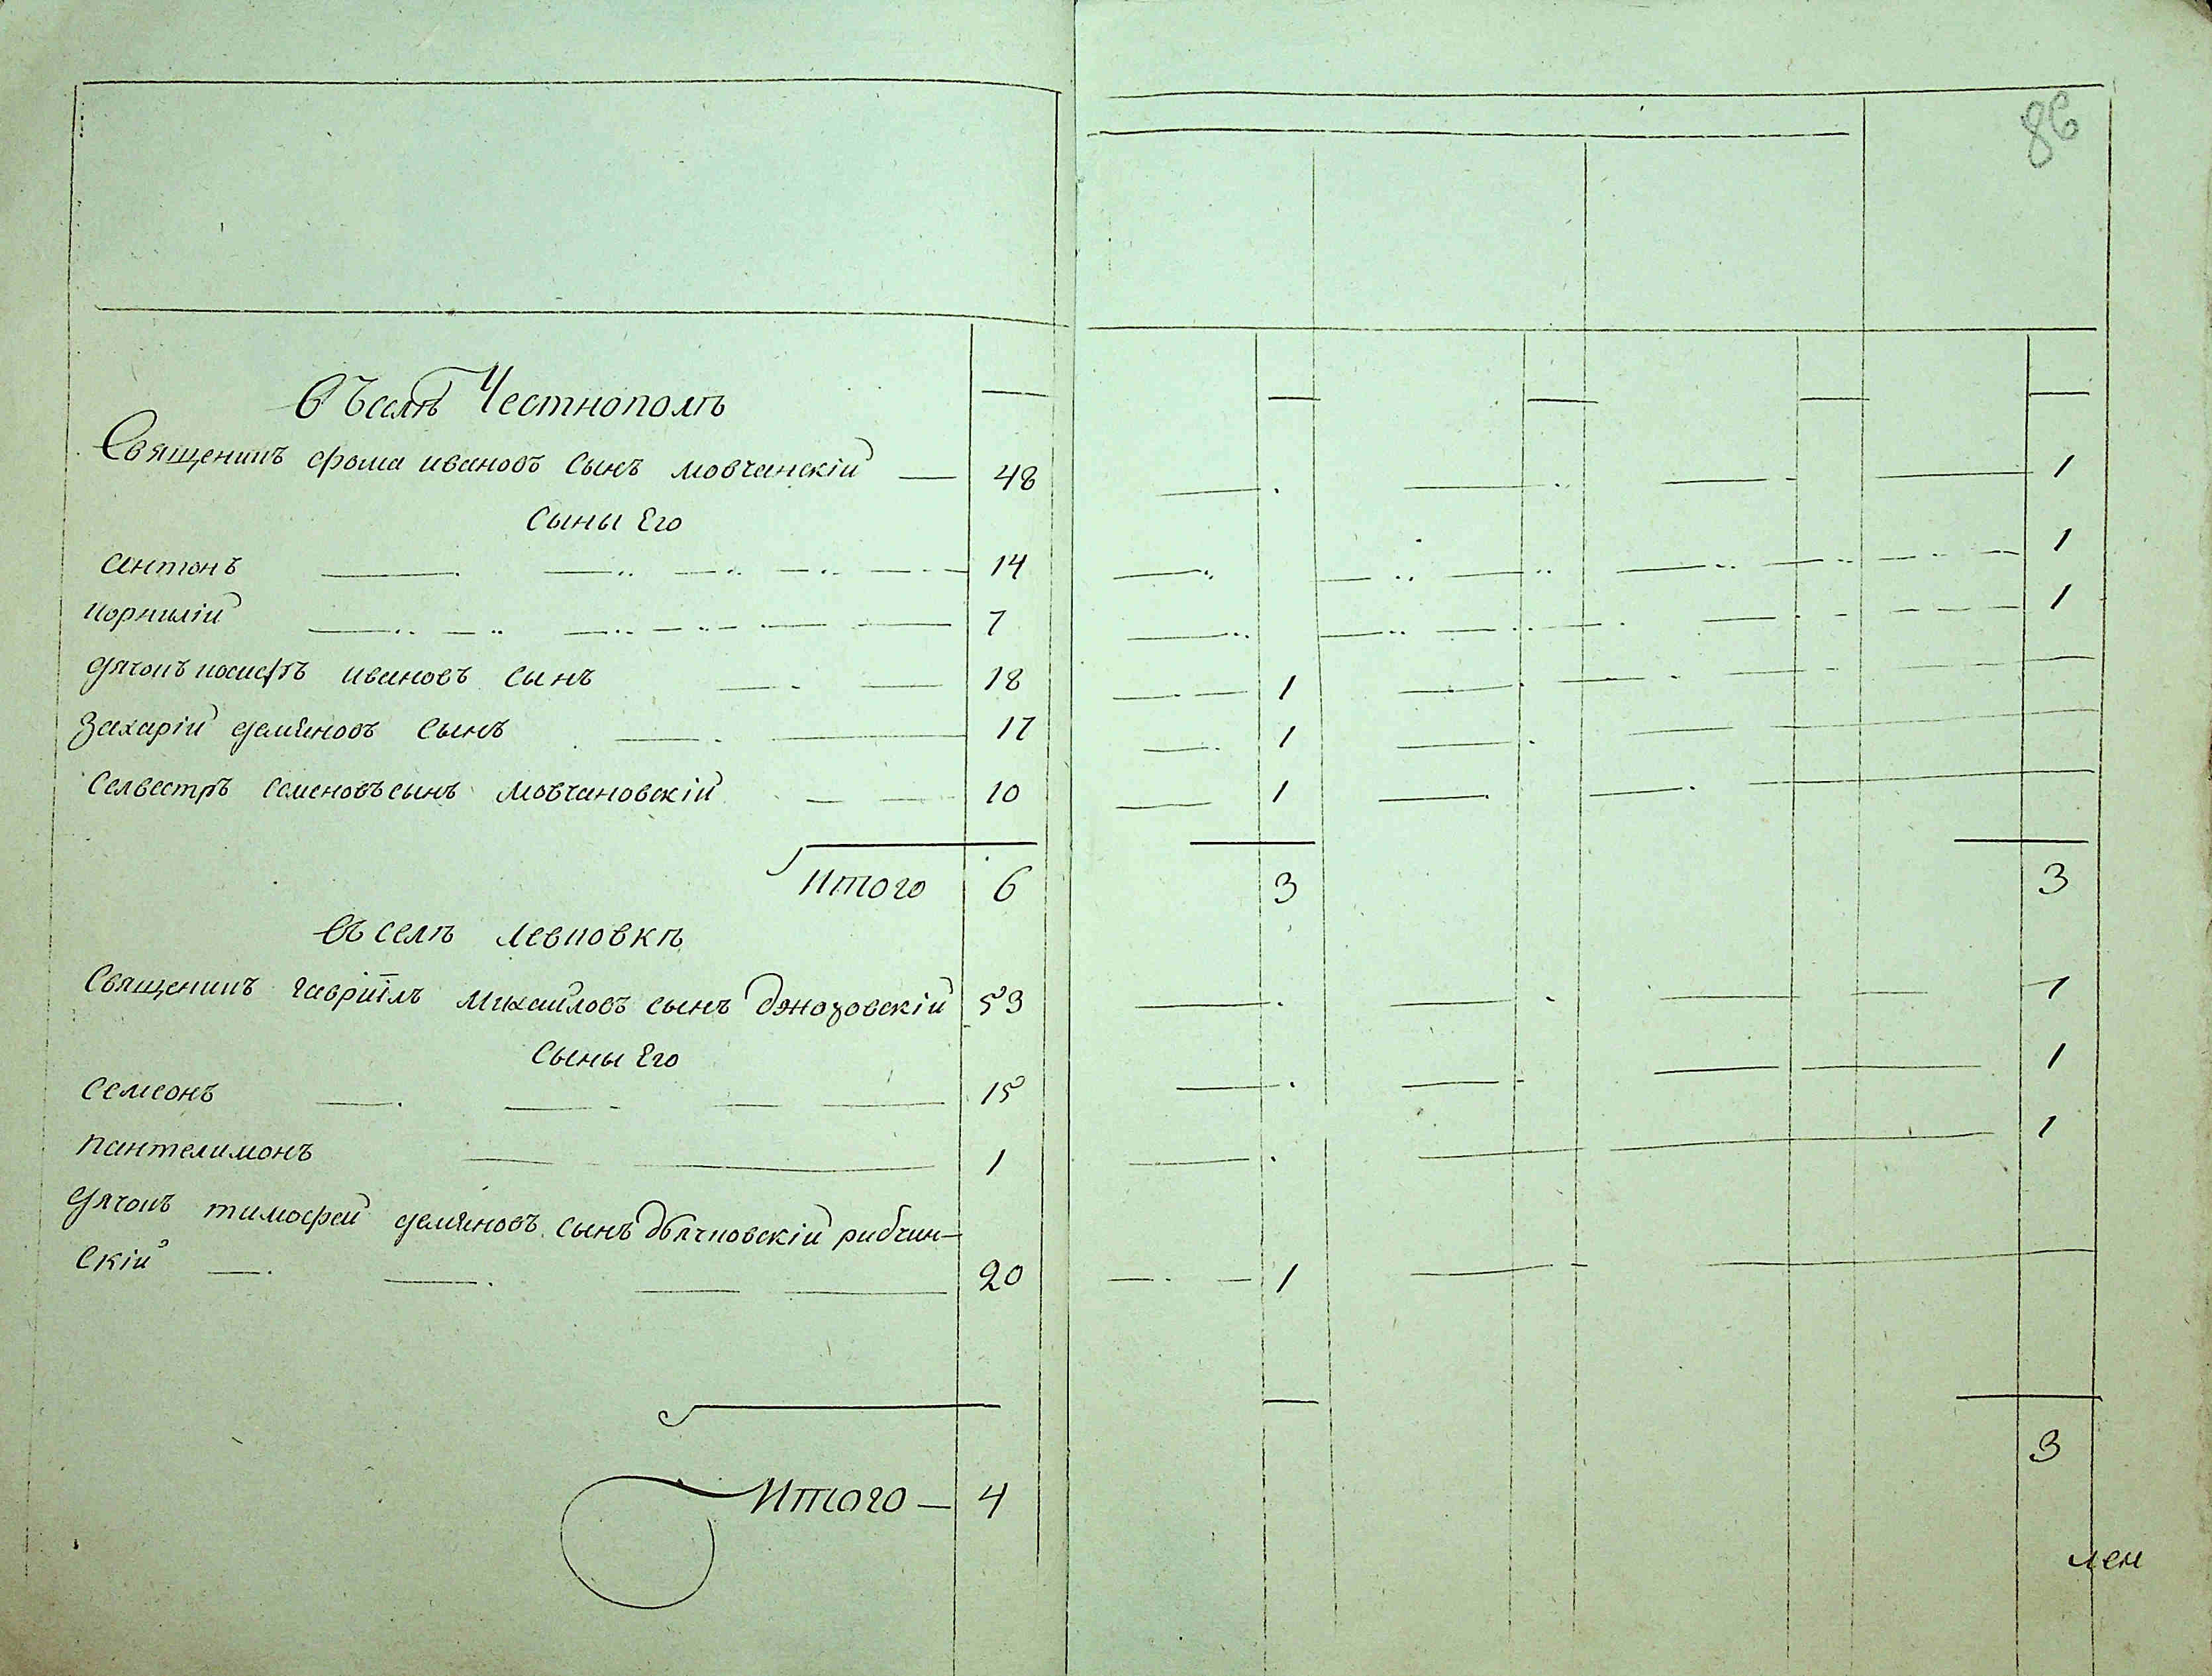 86
Въ селѣ Честнополѣ
Священикъ фома ивановъ сынъ мовчанскій — 48 1
сыны Его
антонъ 14 1
корнилій 7 1
дячокъ иосифъ ивановъ сынъ 18 1
Захарій демяновъ сынъ 17 1
Селвестръ семеновъ сынъ мовчановскій 10 1
Итого 6 3 3
въ селѣ левковкѣ
Священикъ гавріилъ михайловъ сынъ 53 1
сыны Его
семеонъ 15 1
пантелимонъ 1 1
дячокъ тимофей демяновъ сынъ рибчин-
скій 20 1
3
Итого — 4